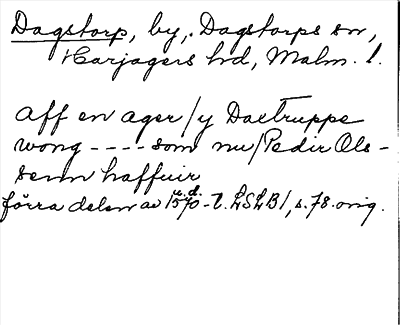 Dagstorp, by, Dagstorps sn,
Harjagers hd, Malm. l.
aff en ager / y Daetruppe
wong - - - - som nu / Pedir Ols-
senn haffuir
förra delen av 1570-t. LSLB 1, s. 78. orig.